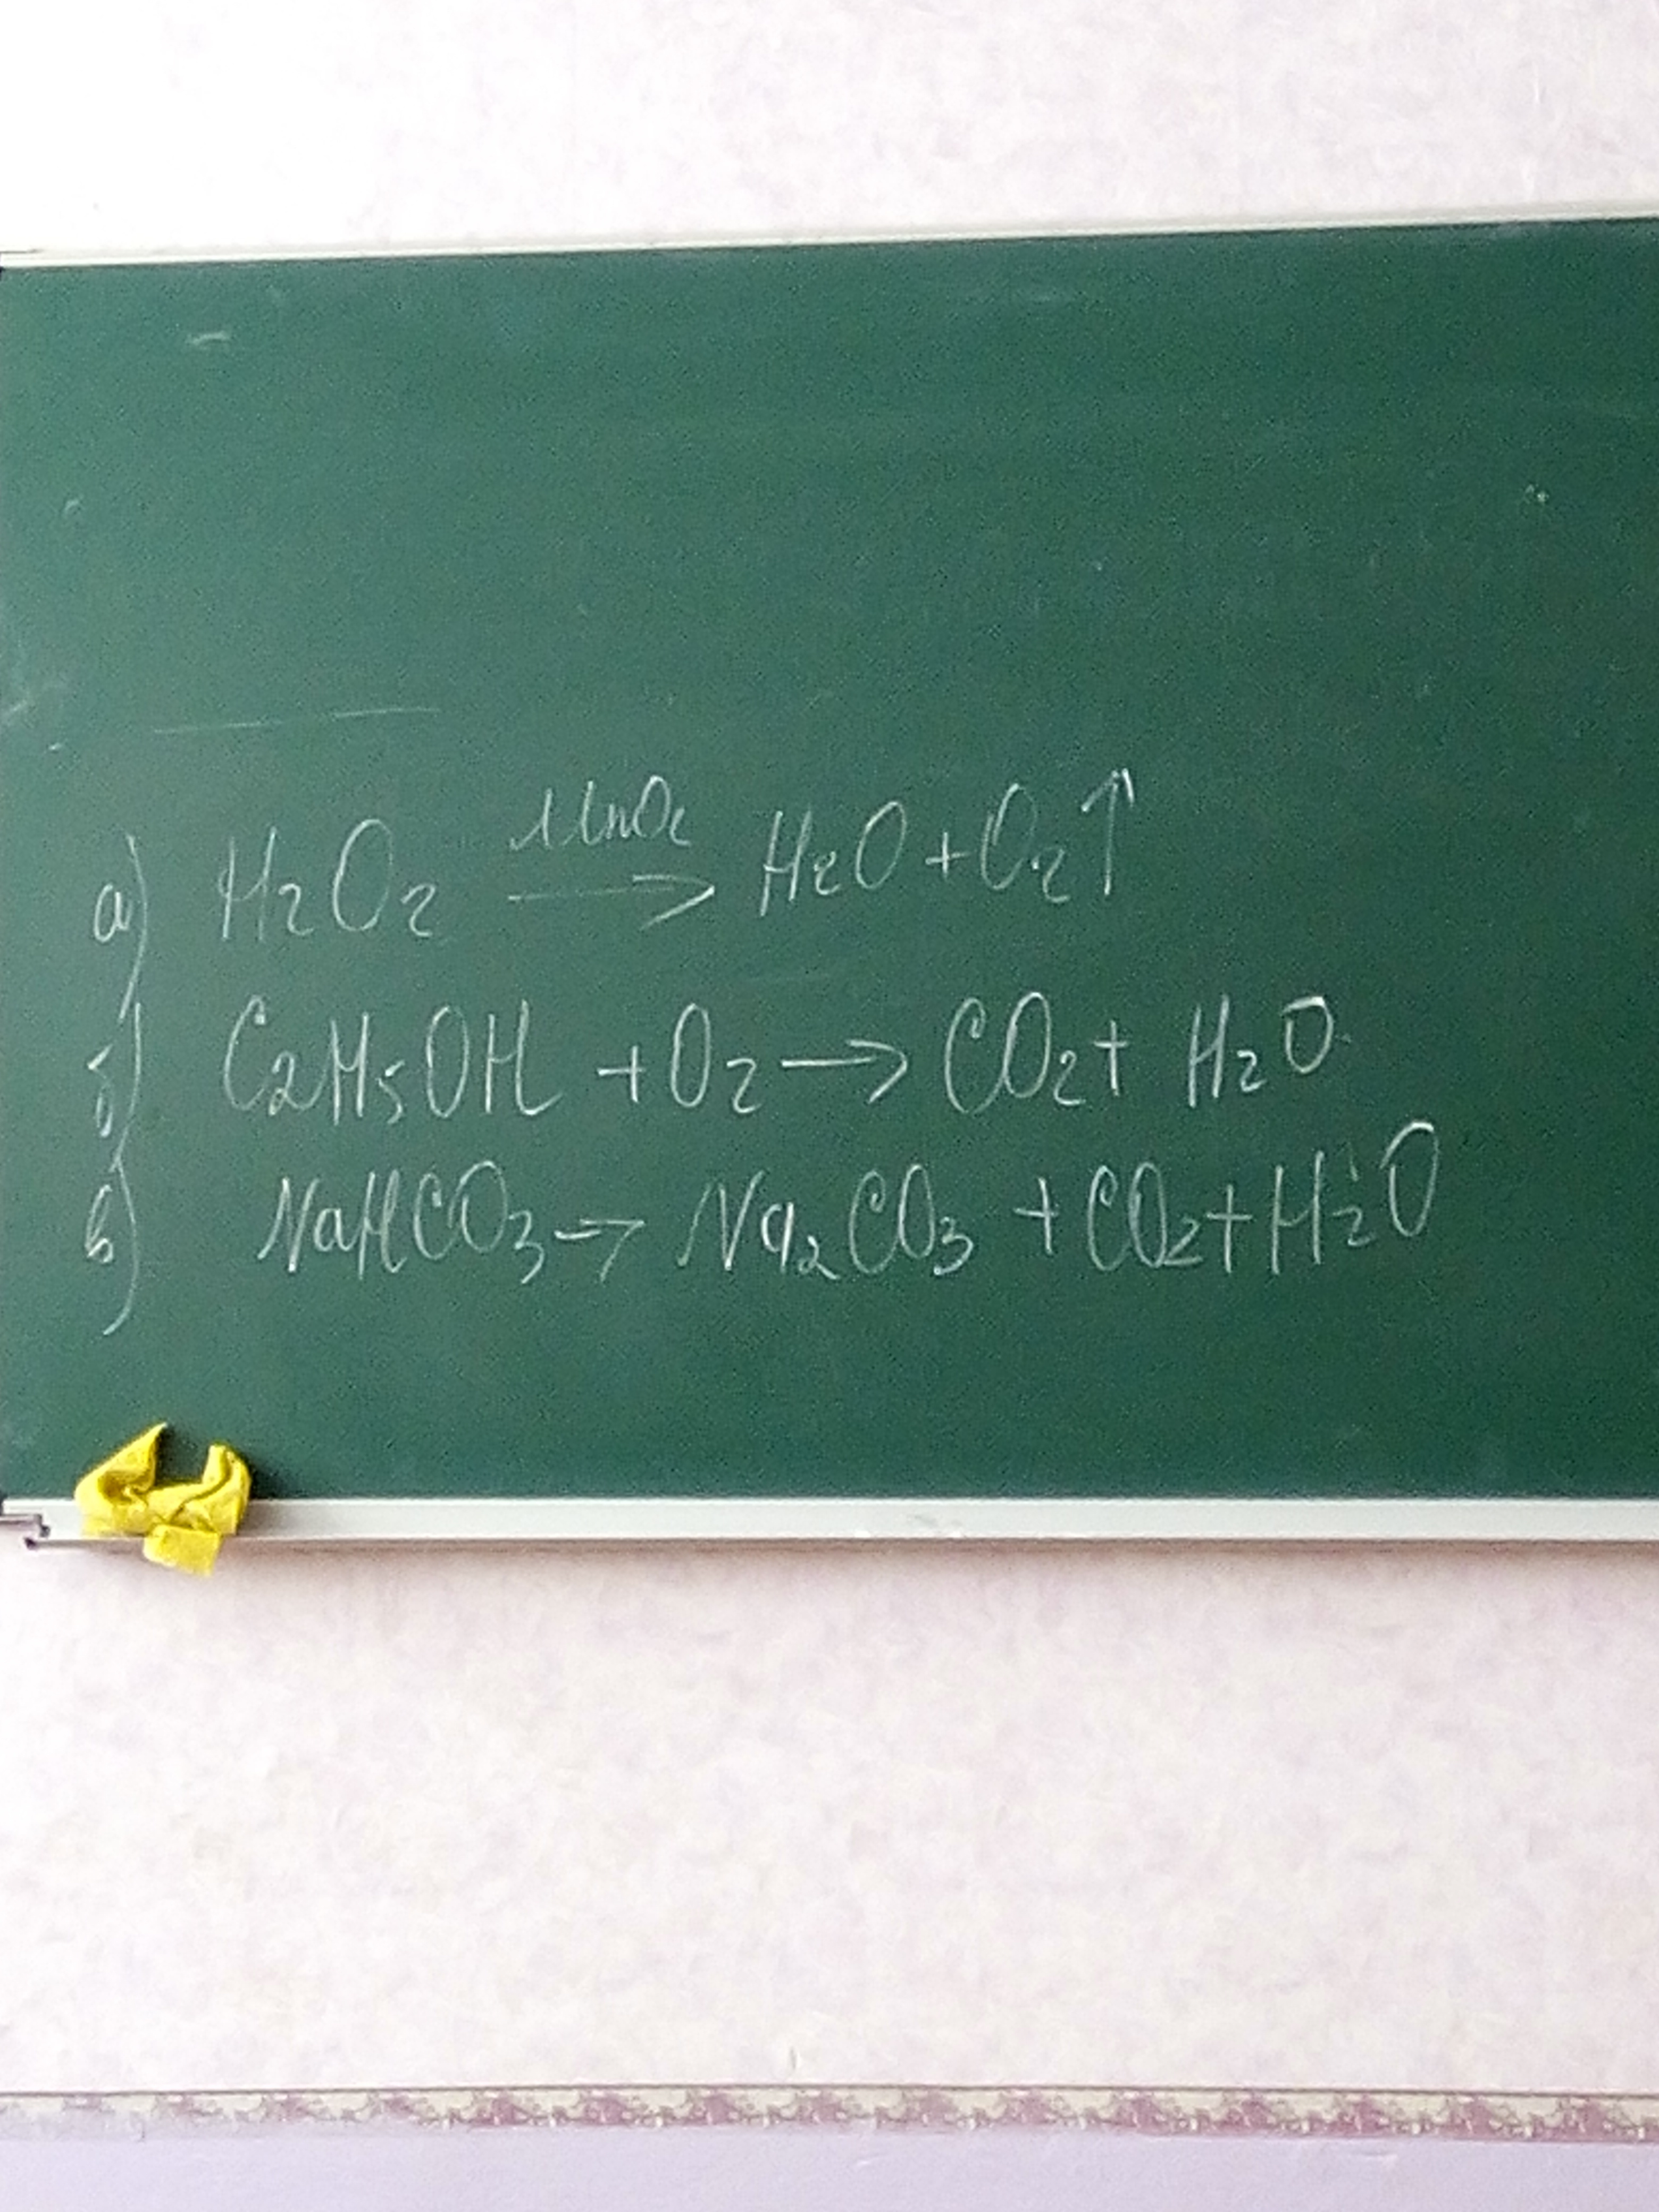 MnO₂
а) H₂O₂ → H₂O + O₂↑
б) C₂H₅OH + O₂ → CO₂ + H₂O
в) NaHCO₃ → Na₂CO₃ + CO₂ + H₂O